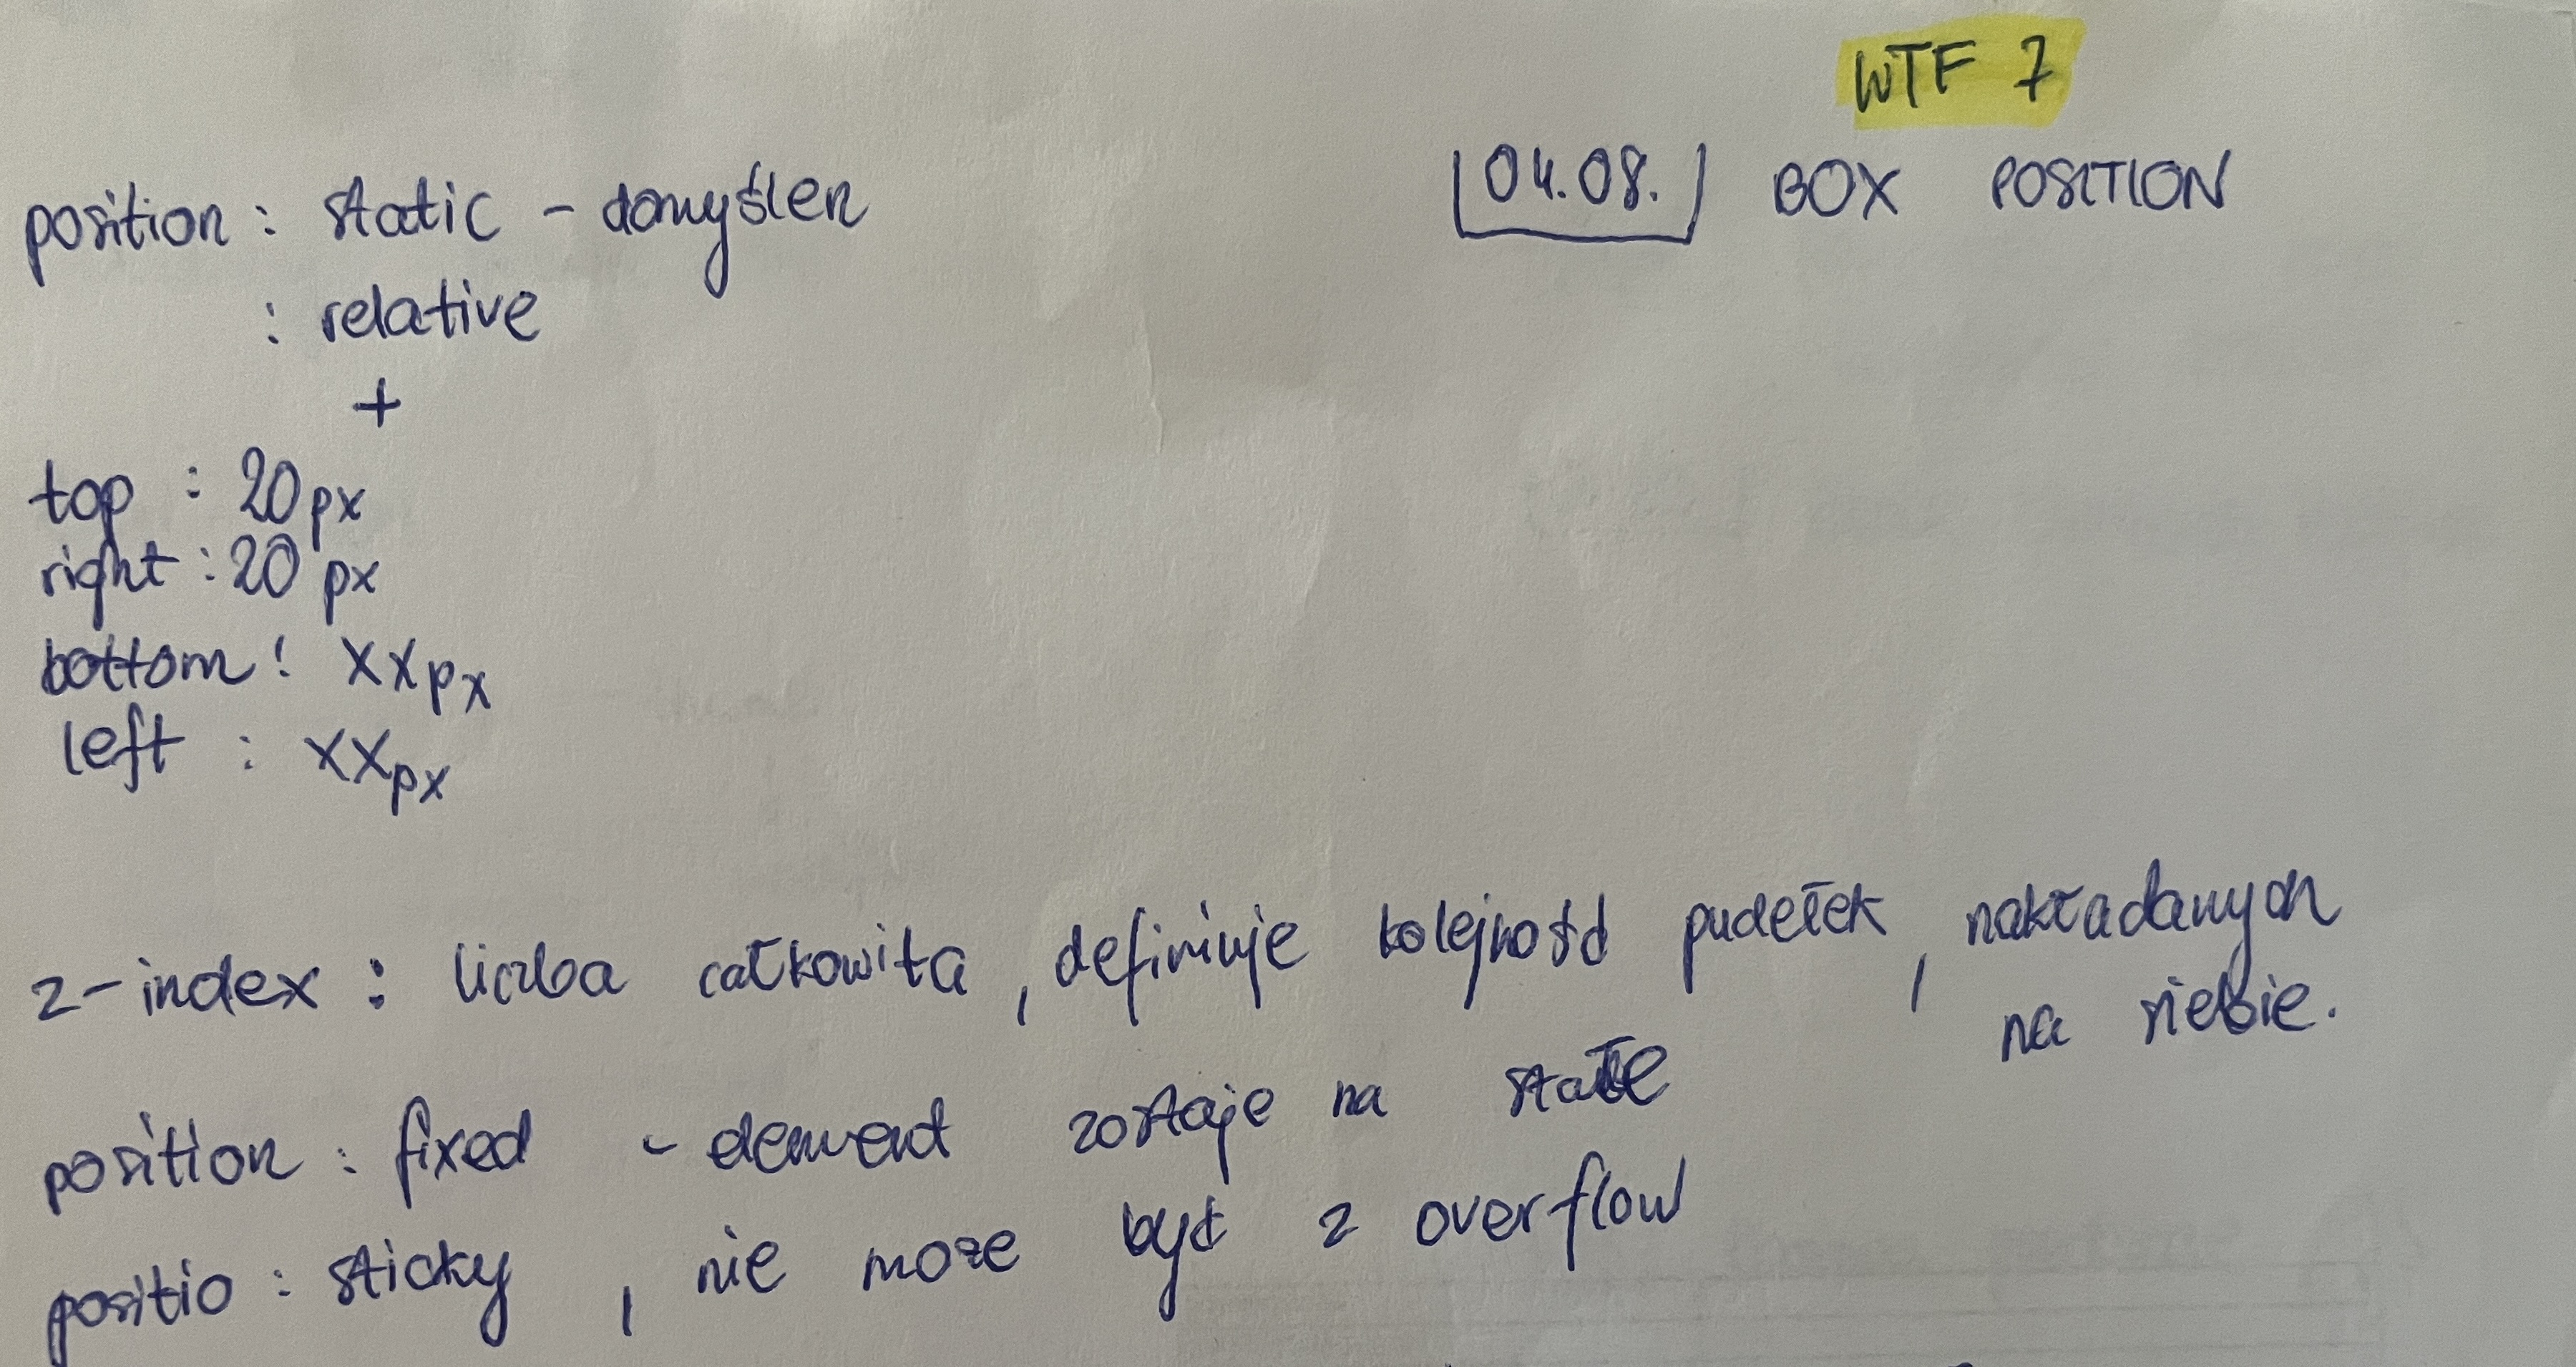 WTF 7
04.08. BOX POSITION
position : static - domyślen
: relative
+
top : 20px
right : 20 px
bottom : xxpx
left : xxpx
z-index : liczba całkowita, definiuje kolejność pudełek, nakładanych
na siebie.
position : fixed - element zostaje na stałe
positio : sticky, nie może być z overflow